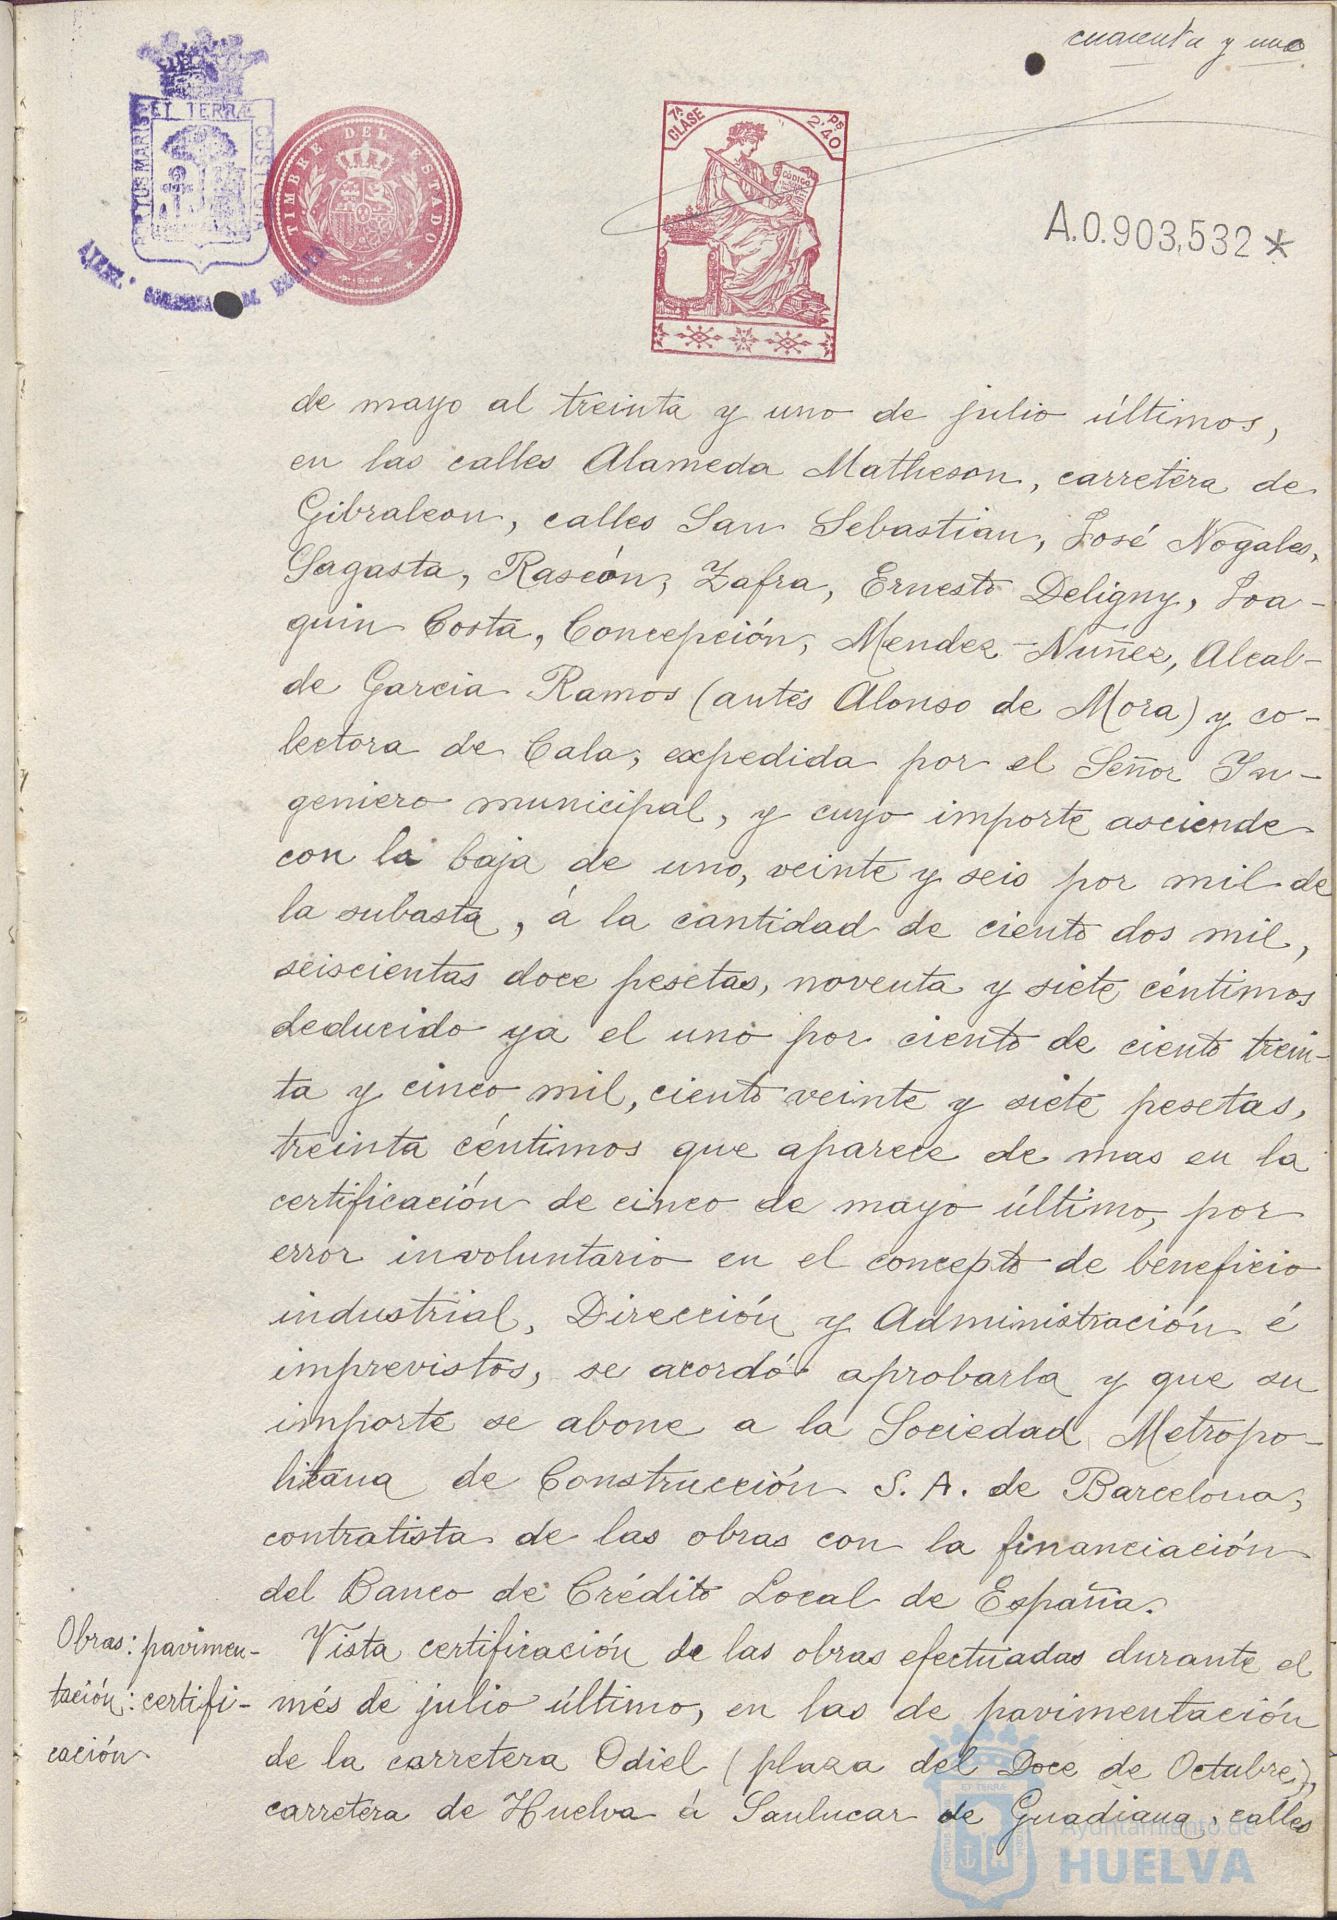 cuarenta y uno
ET TERRÆ
PORTUS MARIS
CUSTODIA
TIMBRE DEL ESTADO
7ª CLASE
Ps 2'40
CÓDIGO
A.0.903,532*
de mayo al treinta y uno de julio últimos,
en las calles Alameda Matheson, carretera de
Gibraleon, calles San Sebastian, José Nogales,
Sagasta, Rascón, Zafra, Ernesto Deligny, Joa-
quin Costa, Concepción, Mendez Nuñez, Alcal-
de Garcia Ramos (antes Alonso de Mora) y co-
lectora de Cala, expedida por el Señor In-
geniero municipal, y cuyo importe asciende
con la baja de uno, veinte y seis por mil de
la subasta, á la cantidad de ciento dos mil,
seiscientas doce pesetas, noventa y siete céntimos
deducido ya el uno por ciento de ciento trein-
ta y cinco mil, ciento veinte y siete pesetas,
treinta céntimos que aparece de mas en la
certificación de cinco de mayo último, por
error involuntario en el concepto de beneficio
industrial, Dirección y Administración é
imprevistos, se acordó aprobarla y que su
importe se abone a la Sociedad Metropo-
litana de Construcción S. A. de Barcelona,
contratista de las obras con la financiación
del Banco de Crédito Local de España.
Obras: pavimen-
tación: certifi-
cación
Vista certificación de las obras efectuadas durante el
més de julio último, en las de pavimentación
de la carretera Odiel (plaza del Doce de Octubre),
carretera de Huelva á Sanlucar de Guadiana, calles
Ayuntamiento de
HUELVA